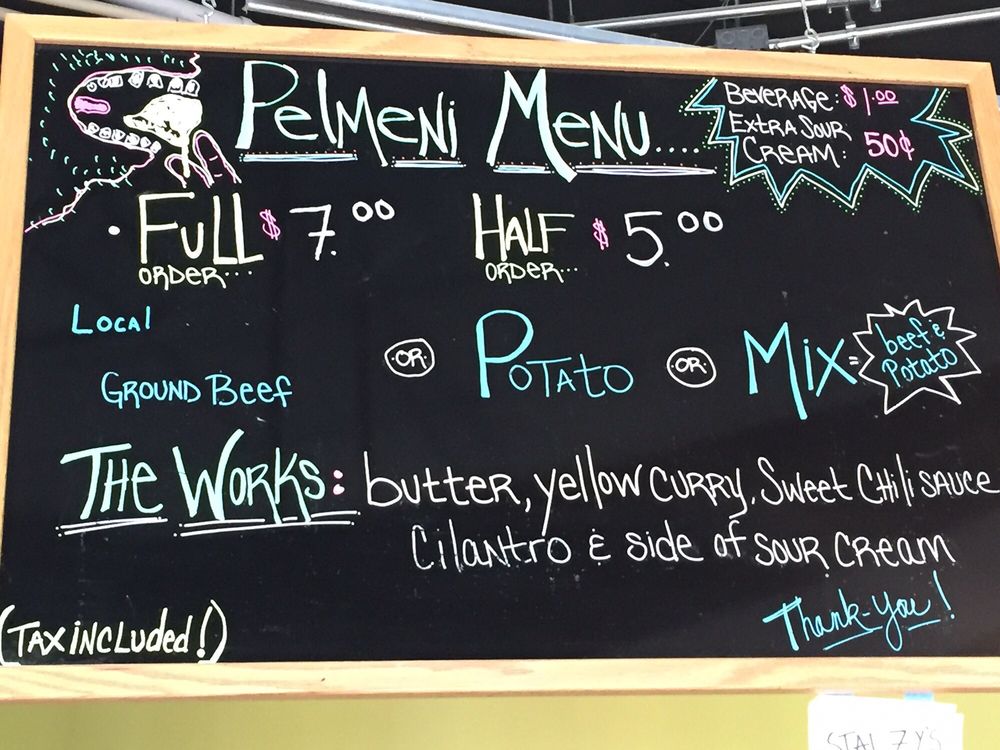 Pelmeni Menu....
Beverage: $1.00
Extra Sour
Cream: 50¢
• Full $7.00 Half $5.00
order... order...
Local
Ground Beef or Potato or Mix = beef &
Potato
The Works: butter, yellow curry, Sweet Chili sauce
Cilantro & side of sour cream
Thank-you!
(Tax included!)